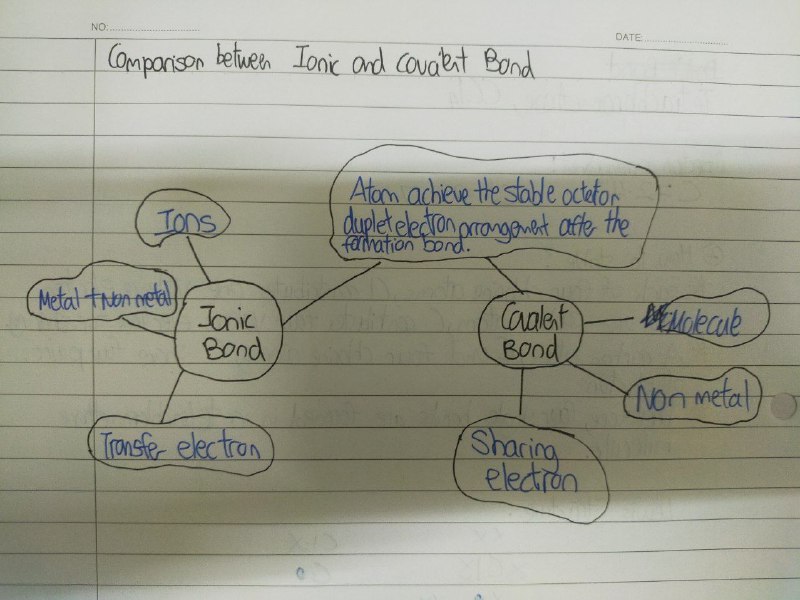 NO:
DATE:
Comparison between Ionic and Covalent Bond
Atom achieve the stable octet or
duplet electron arrangement after the
formation bond.
Ions
Metal + Non metal
Ionic
Bond
Transfer electron
Covalent
Bond
Molecule
Non metal
Sharing
electron